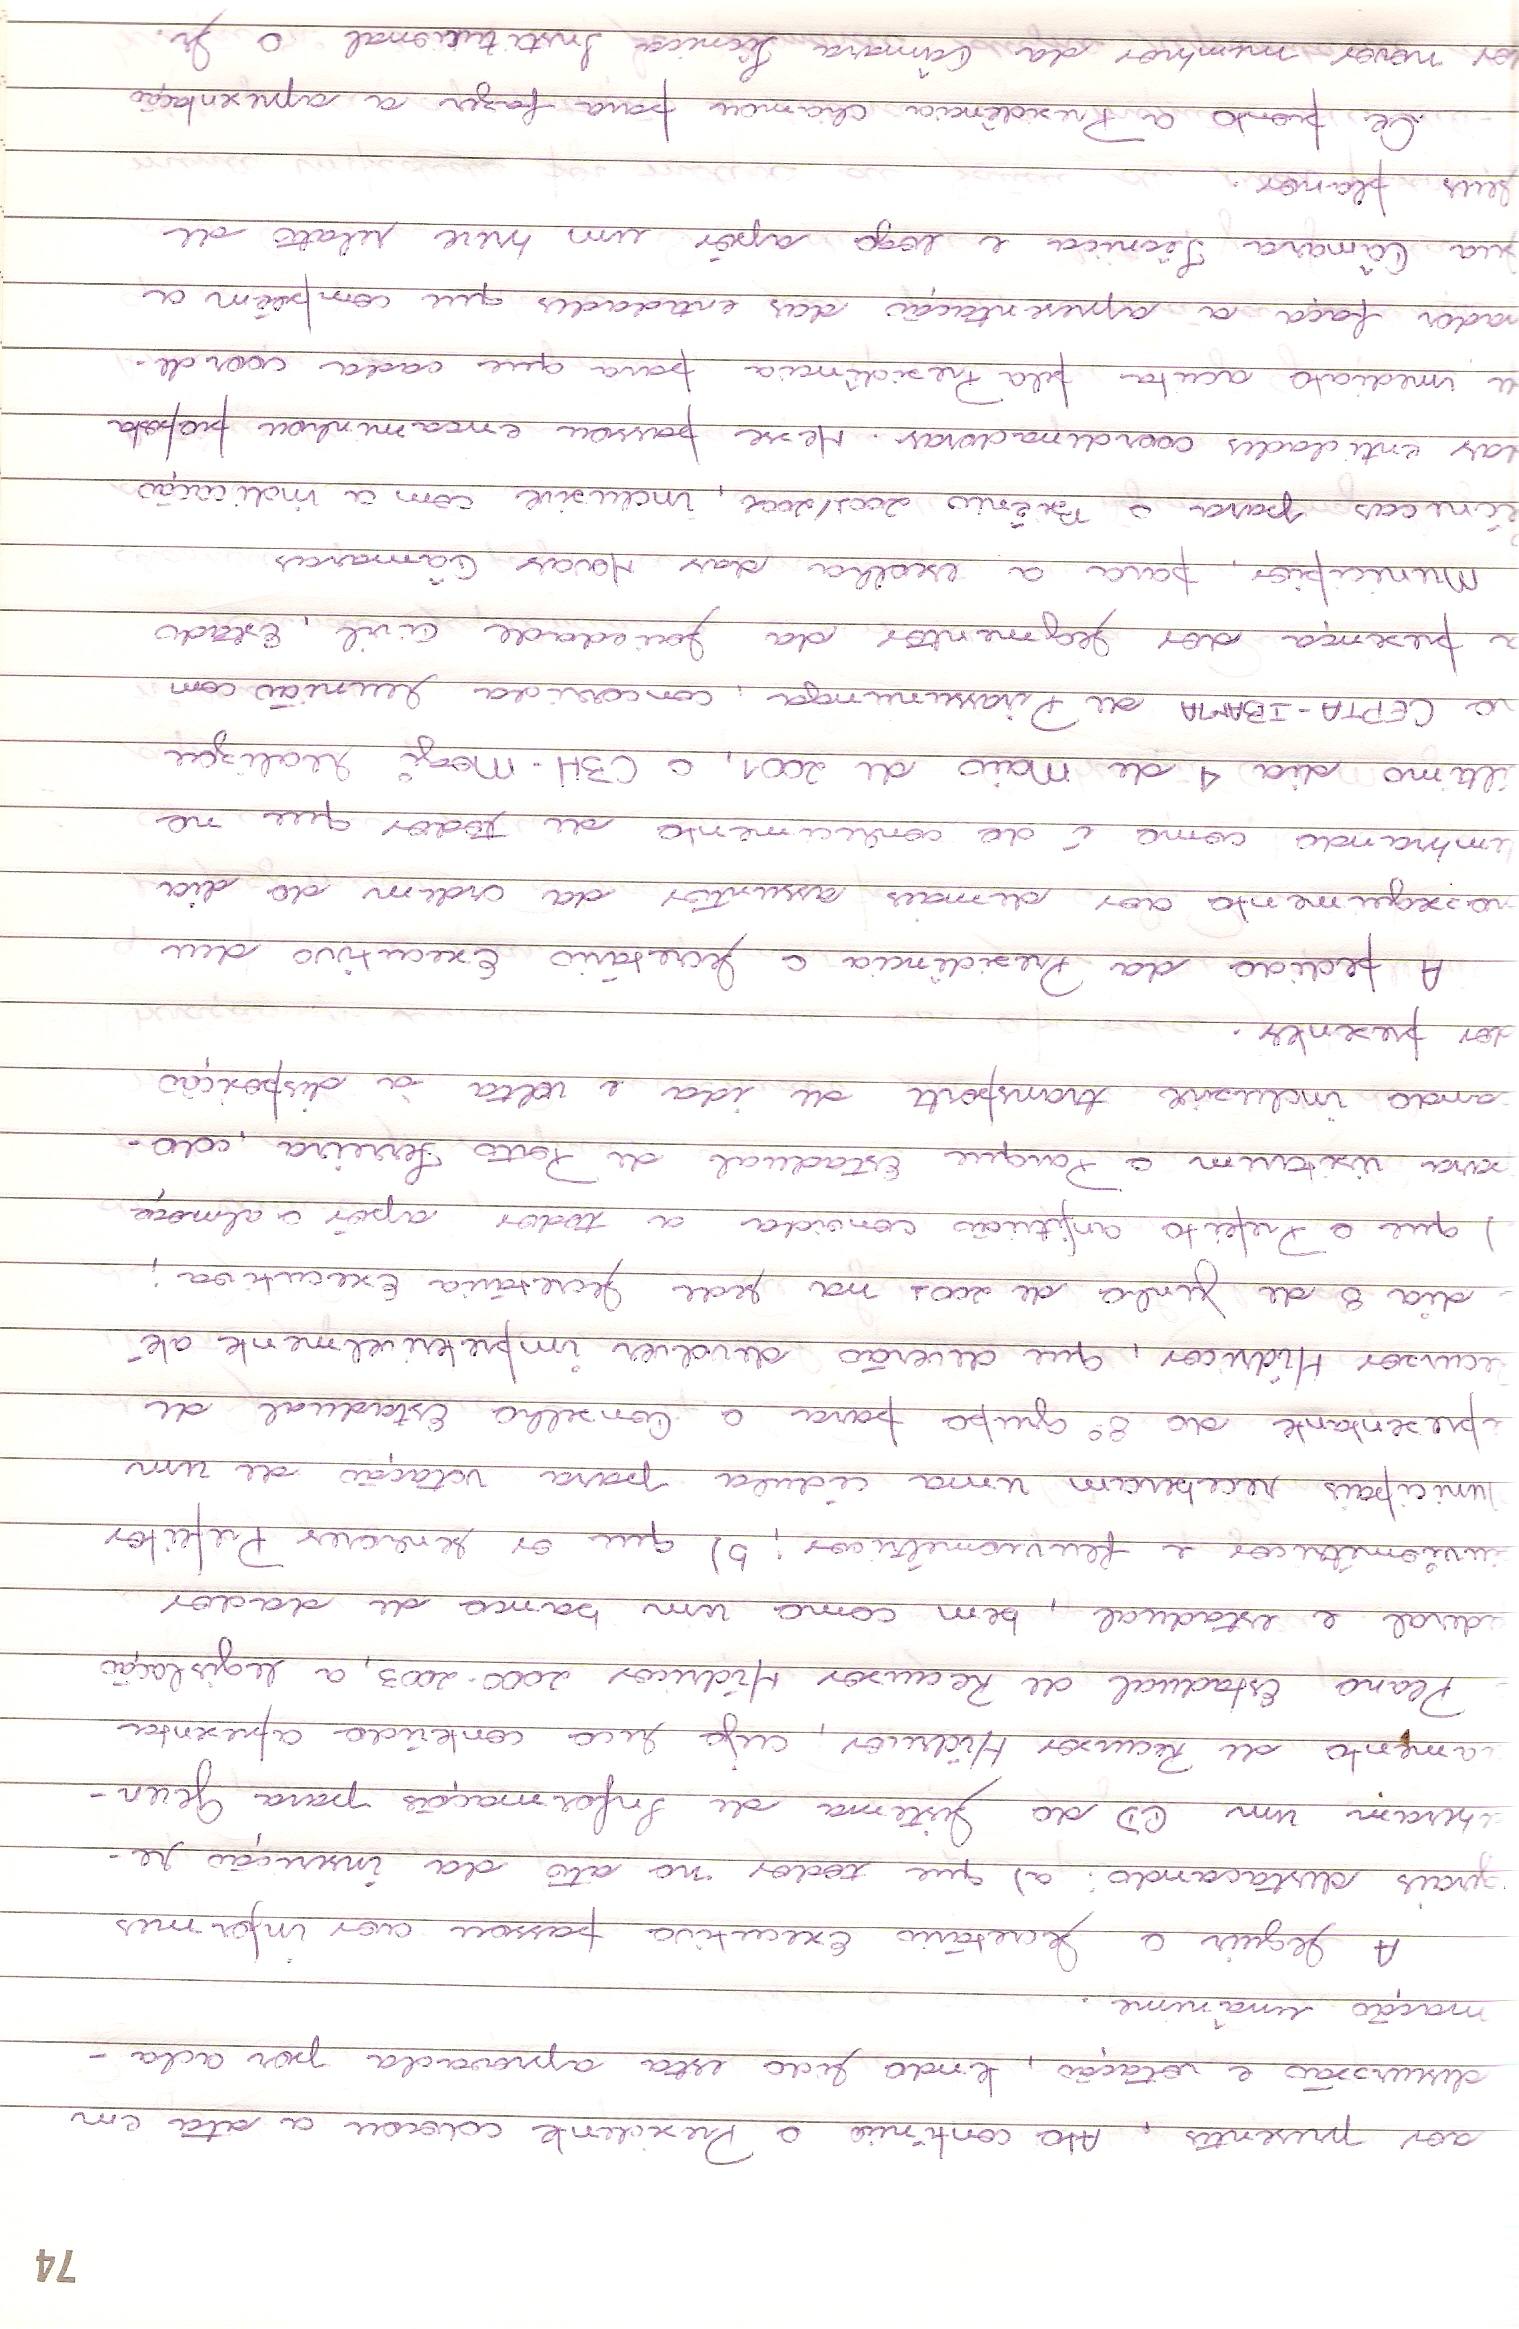 74
aos presentes, Ato contínuo o Presidente colocou a ata em
discussão e votação, tendo sido esta aprovada por acla-
mação unânime.
A seguir o Secretário Executivo passou aos informes
gerais destacando: a) que todos no ato da inscrição re-
beram um CD do Sistema de Informações para Geren-
amento de Recursos Hídricos, cujo seu conteúdo apresenta
Plano Estadual de Recursos Hídricos 2000-2003, a legislação
deral e estadual, bem como um banco de dados
uviométricos e fluviométricos; b) que os senhores Prefeitos
unicipais receberam uma cédula para votação de um
presentante do 8º grupo para o Conselho Estadual de
ecursos Hídricos, que deverão devolver impreterivelmente até
dia 8 de junho de 2001 na sede Secretaria Executiva;
) que o Prefeito anfitrião convida a todos após o almoço
ara visitarem o Parque Estadual de Porto Ferreira, colo-
ando inclusive transporte de ida e volta à disposição
dos presentes.
A pedido da Presidência o Secretário Executivo deu
rosseguimento aos demais assuntos da ordem do dia
embrando como é de conhecimento de todos que no
último dia 4 de Maio de 2001, o CBH-Mogi realizou
no CEPTA-IBAMA de Pirassununga, concorrida reunião com
a presença dos segmentos da sociedade civil, Estado
Municípios, para a escolha das Novas Câmaras
écnicas para o Biênio 2001/2002, inclusive com a indicação
das entidades coordenadoras. Nesse passou encaminhou proposta
imediato aceita pela Presidência para que cada coorde-
nador faça a apresentação das entidades que compõem a
sua Câmara Técnica e logo após um breve relato de
seus planos.
De pronto a Presidência chamou para fazer a apresentação
os novos membros da Câmara Técnica Institucional o Sr.